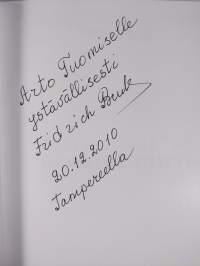 Arto Tuomiselle
ystävällisesti
Fridrich Bruk
20.12.2010
Tampereella